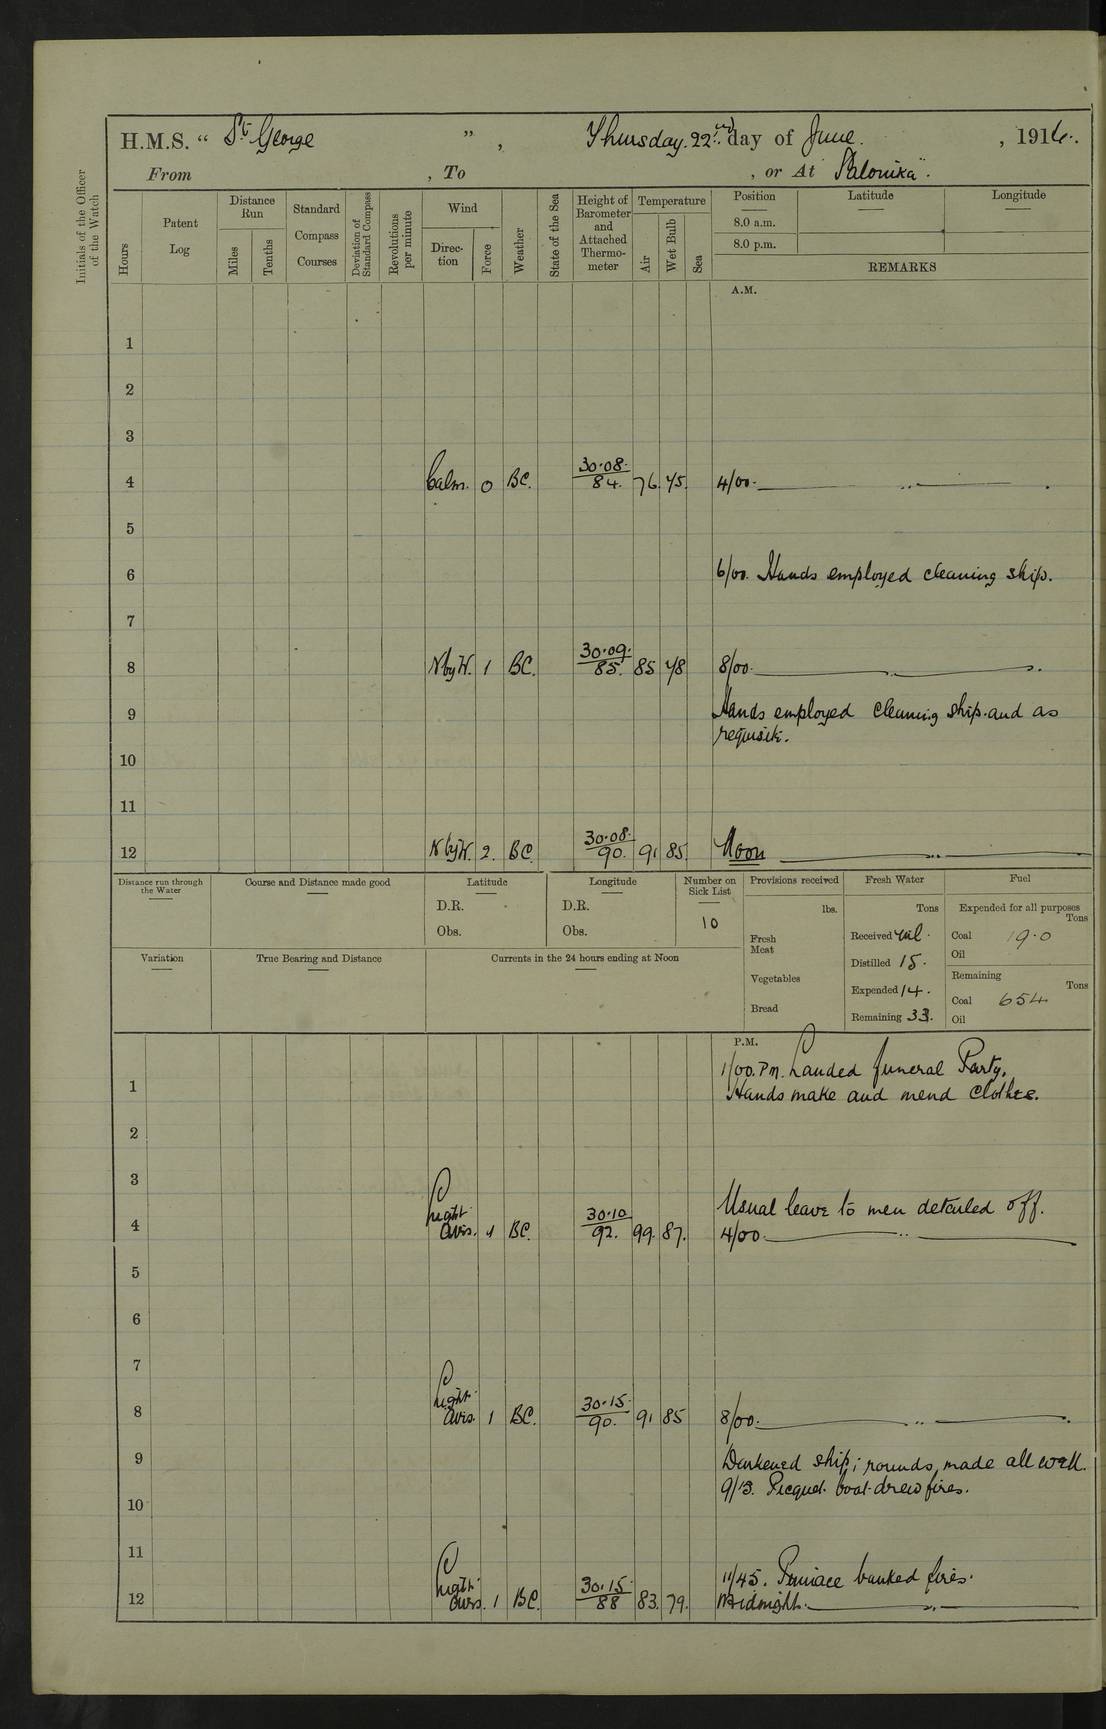 H.M.S. “ St. George ”, Thursday. 22nd day of June. , 1916.
From , To , or At Salonika".
Initials of the Officer of the Watch
Hours
Patent Log
Distance Run
Miles
Tenths
Standard Compass Courses
Deviation of Standard Compass
Revolutions per minute
Wind
Direction
Force
Weather
State of the Sea
Height of Barometer and Attached Thermometer
Temperature
Air
Wet Bulb
Sea
Position Latitude Longitude
8.0 a.m.
8.0 p.m.
REMARKS
A.M.
1
2
3
4 Calm. 0 BC. 30.08. 84. 76. 75. 4/00.
5
6 6/00. Hands employed cleaning ship.
7
8 N by W. 1 BC. 30.09. 85. 85 78 8/00.
9 Hands employed cleaning ship. and as
requisite.
10
11
12 N by W. 2. BC. 30.08. 90. 91 85. Noon
Distance run through the Water
Course and Distance made good
Latitude
D.R.
Obs.
Longitude
D.R.
Obs.
Number on Sick List
10
Provisions received
lbs.
Fresh Meat
Vegetables
Bread
Fresh Water
Tons
Received nil.
Distilled 15.
Expended 14.
Remaining 33.
Fuel
Expended for all purposes
Tons
Coal 19.0
Oil
Remaining
Tons
Coal 654
Oil
Variation
True Bearing and Distance
Currents in the 24 hours ending at Noon
P.M.
1/00. Pm. Landed funeral Party.
1 Hands make and mend clothes.
2
3
Usual leave to men detailed off.
4 Light airs. 1 BC. 30.10 92. 99. 87. 4/00.
5
6
7
8 Light airs. 1 BC. 30.15. 90. 91 85 8/00.
9 Darkened ship; rounds, made all well.
9/15. Picquet. boat. drew fires.
10
11
11/45. Pinnace banked fires.
12 Light airs. 1 BC. 30.15. 88 83. 79. Midnight.